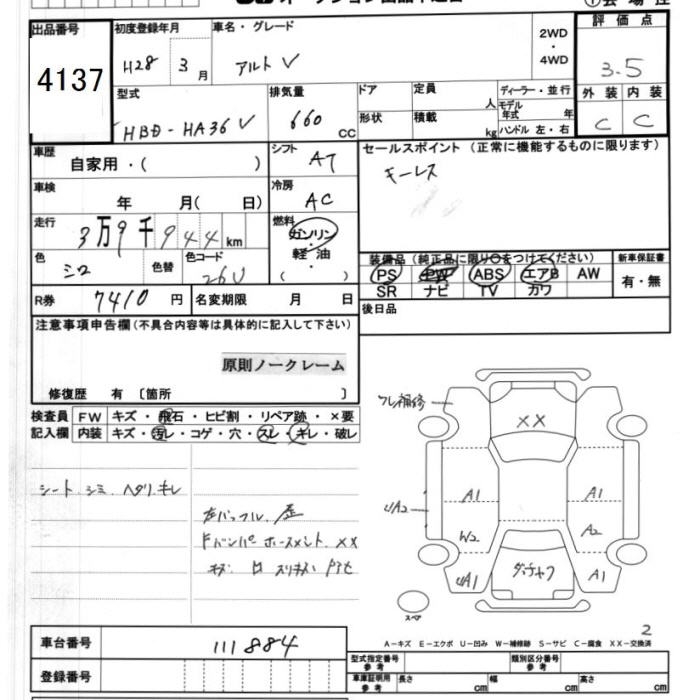 出品番号
4137
初度登録年月
H28 3月
車名・グレード
アルト V
2WD
・
4WD
評価点
3.5
外装 内装
C C
型式
HBD-HA36V
排気量
660 CC
ドア
形状
定員 人
積載 kg
ディーラー・並行
モデル年式 年
ハンドル 左・右
車歴
自家用・( )
シフト AT
セールスポイント (正常に機能するものに限ります)
キーレス
車検
年 月( 日)
冷房 AC
走行
3万9千944km
燃料
ガソリン
・
軽油
・
( )
色 シロ
色替
色コード 26U
装備品 (純正品に限り○をつけてください)
PS PW ABS エアB AW
SR ナビ TV カワ
新車保証書
有・無
R券 7410 円
名変期限 月 日
後日品
注意事項申告欄 (不具合内容等は具体的に記入して下さい)
原則ノークレーム
修復歴 有 〔箇所 〕
検査員
記入欄
FW キズ・飛石・ヒビ割・リペア跡・×要
内装 キズ・汚レ・コゲ・穴・スレ・キレ・破レ
シート シミ ヘタリ キレ
XX
A1
A1
A2
W2
A2
A1
スペア
2
A-キズ E-エクボ U-凹み W-補修跡 S-サビ C-腐食 XX-交換済
車台番号 111884
登録番号
型式指定番号
参考
類別区分番号
参考
車庫証明用
参考
長さ cm
幅 cm
高さ cm